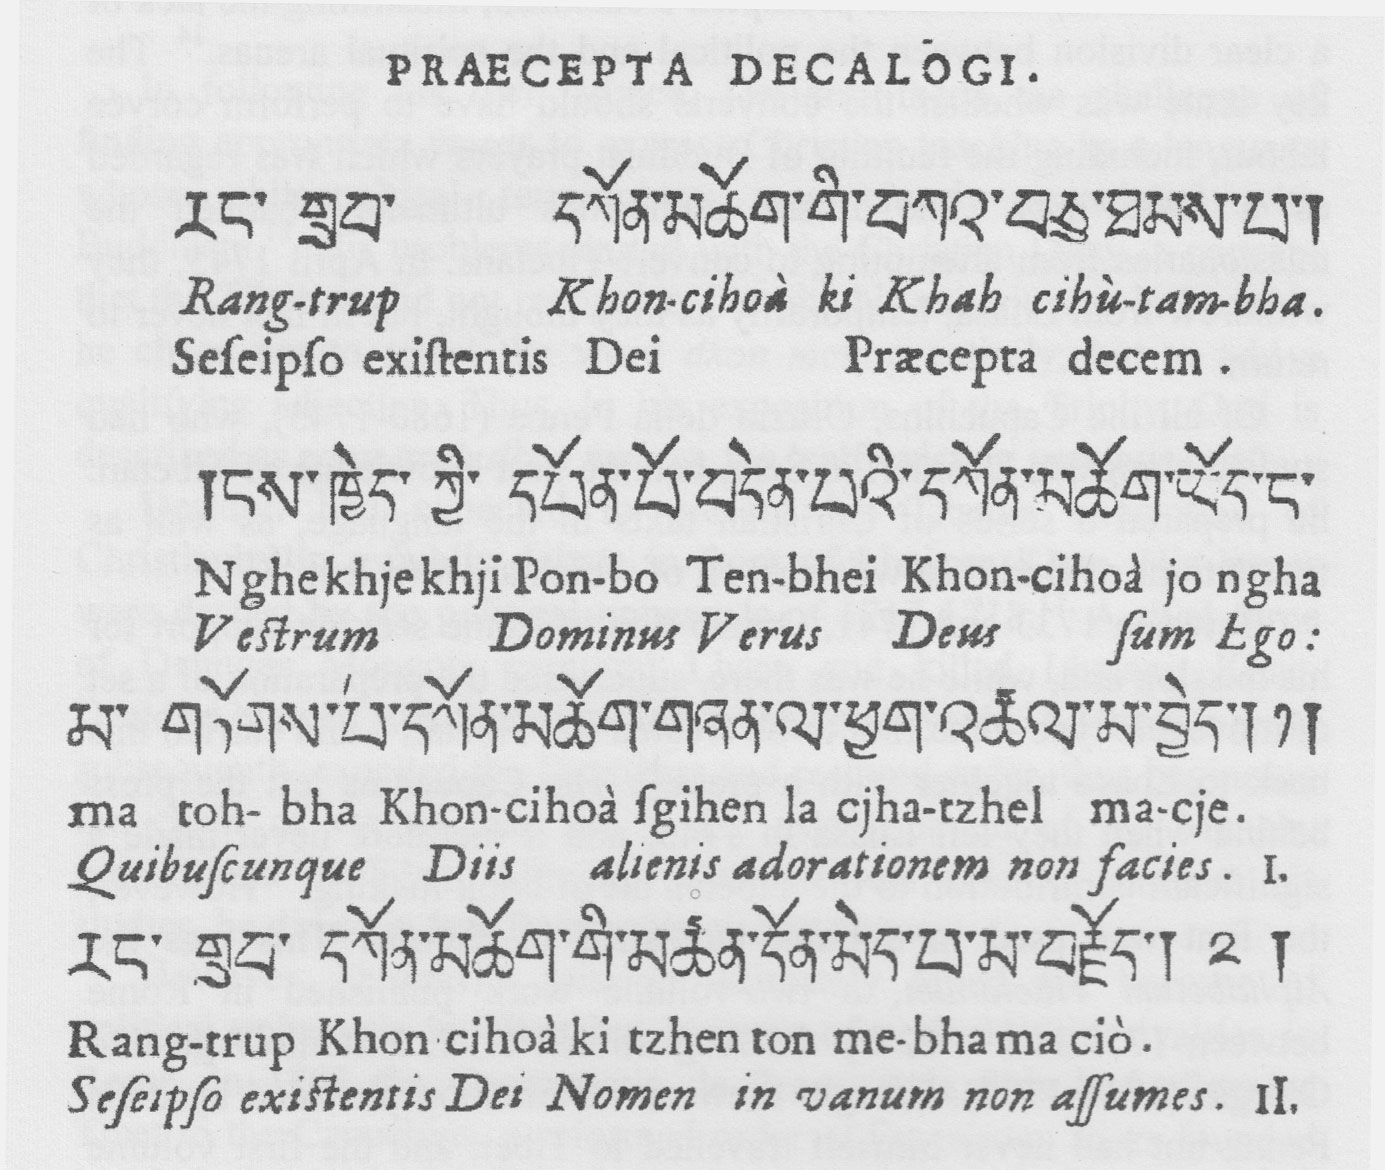 PRAECEPTA DECALOGI.
རང་ གྲུབ་ དཀོན་མཆོག་གི་བཀའ་བཅུ་ཐམས་པ་།
Rang-trup Khon-cihoà ki Khah cihù-tam-bha.
Seſeipſo exiſtentis Dei Præcepta decem.
།ངས་ ཁྱེད་ ཀྱི་ དཔོན་པོ་བདེན་པའི་དཀོན་མཆོག་ཡོད་ང་
Nghe khje khji Pon-bo Ten-bhei Khon-cihoà jo ngha
Veſtrum Dominus Verus Deus ſum Ego:
མ་ གཏོགས་པ་དཀོན་མཆོག་གཞན་ལ་ཕྱག་འཚལ་མ་བྱེད་། ༡།
ma toh- bha Khon-cihoà ſgihen la cjha-tzhel ma-cje.
Quibuſcunque Diis alienis adorationem non facies. I.
རང་ གྲུབ་ དཀོན་མཆོག་གི་མཚན་དོན་མེད་པ་མ་བརྗོད་། ༢ །
Rang-trup Khon cihoà ki tzhen ton me-bha ma ciò.
Seſeipſo exiſtentis Dei Nomen in vanum non aſſumes. II.